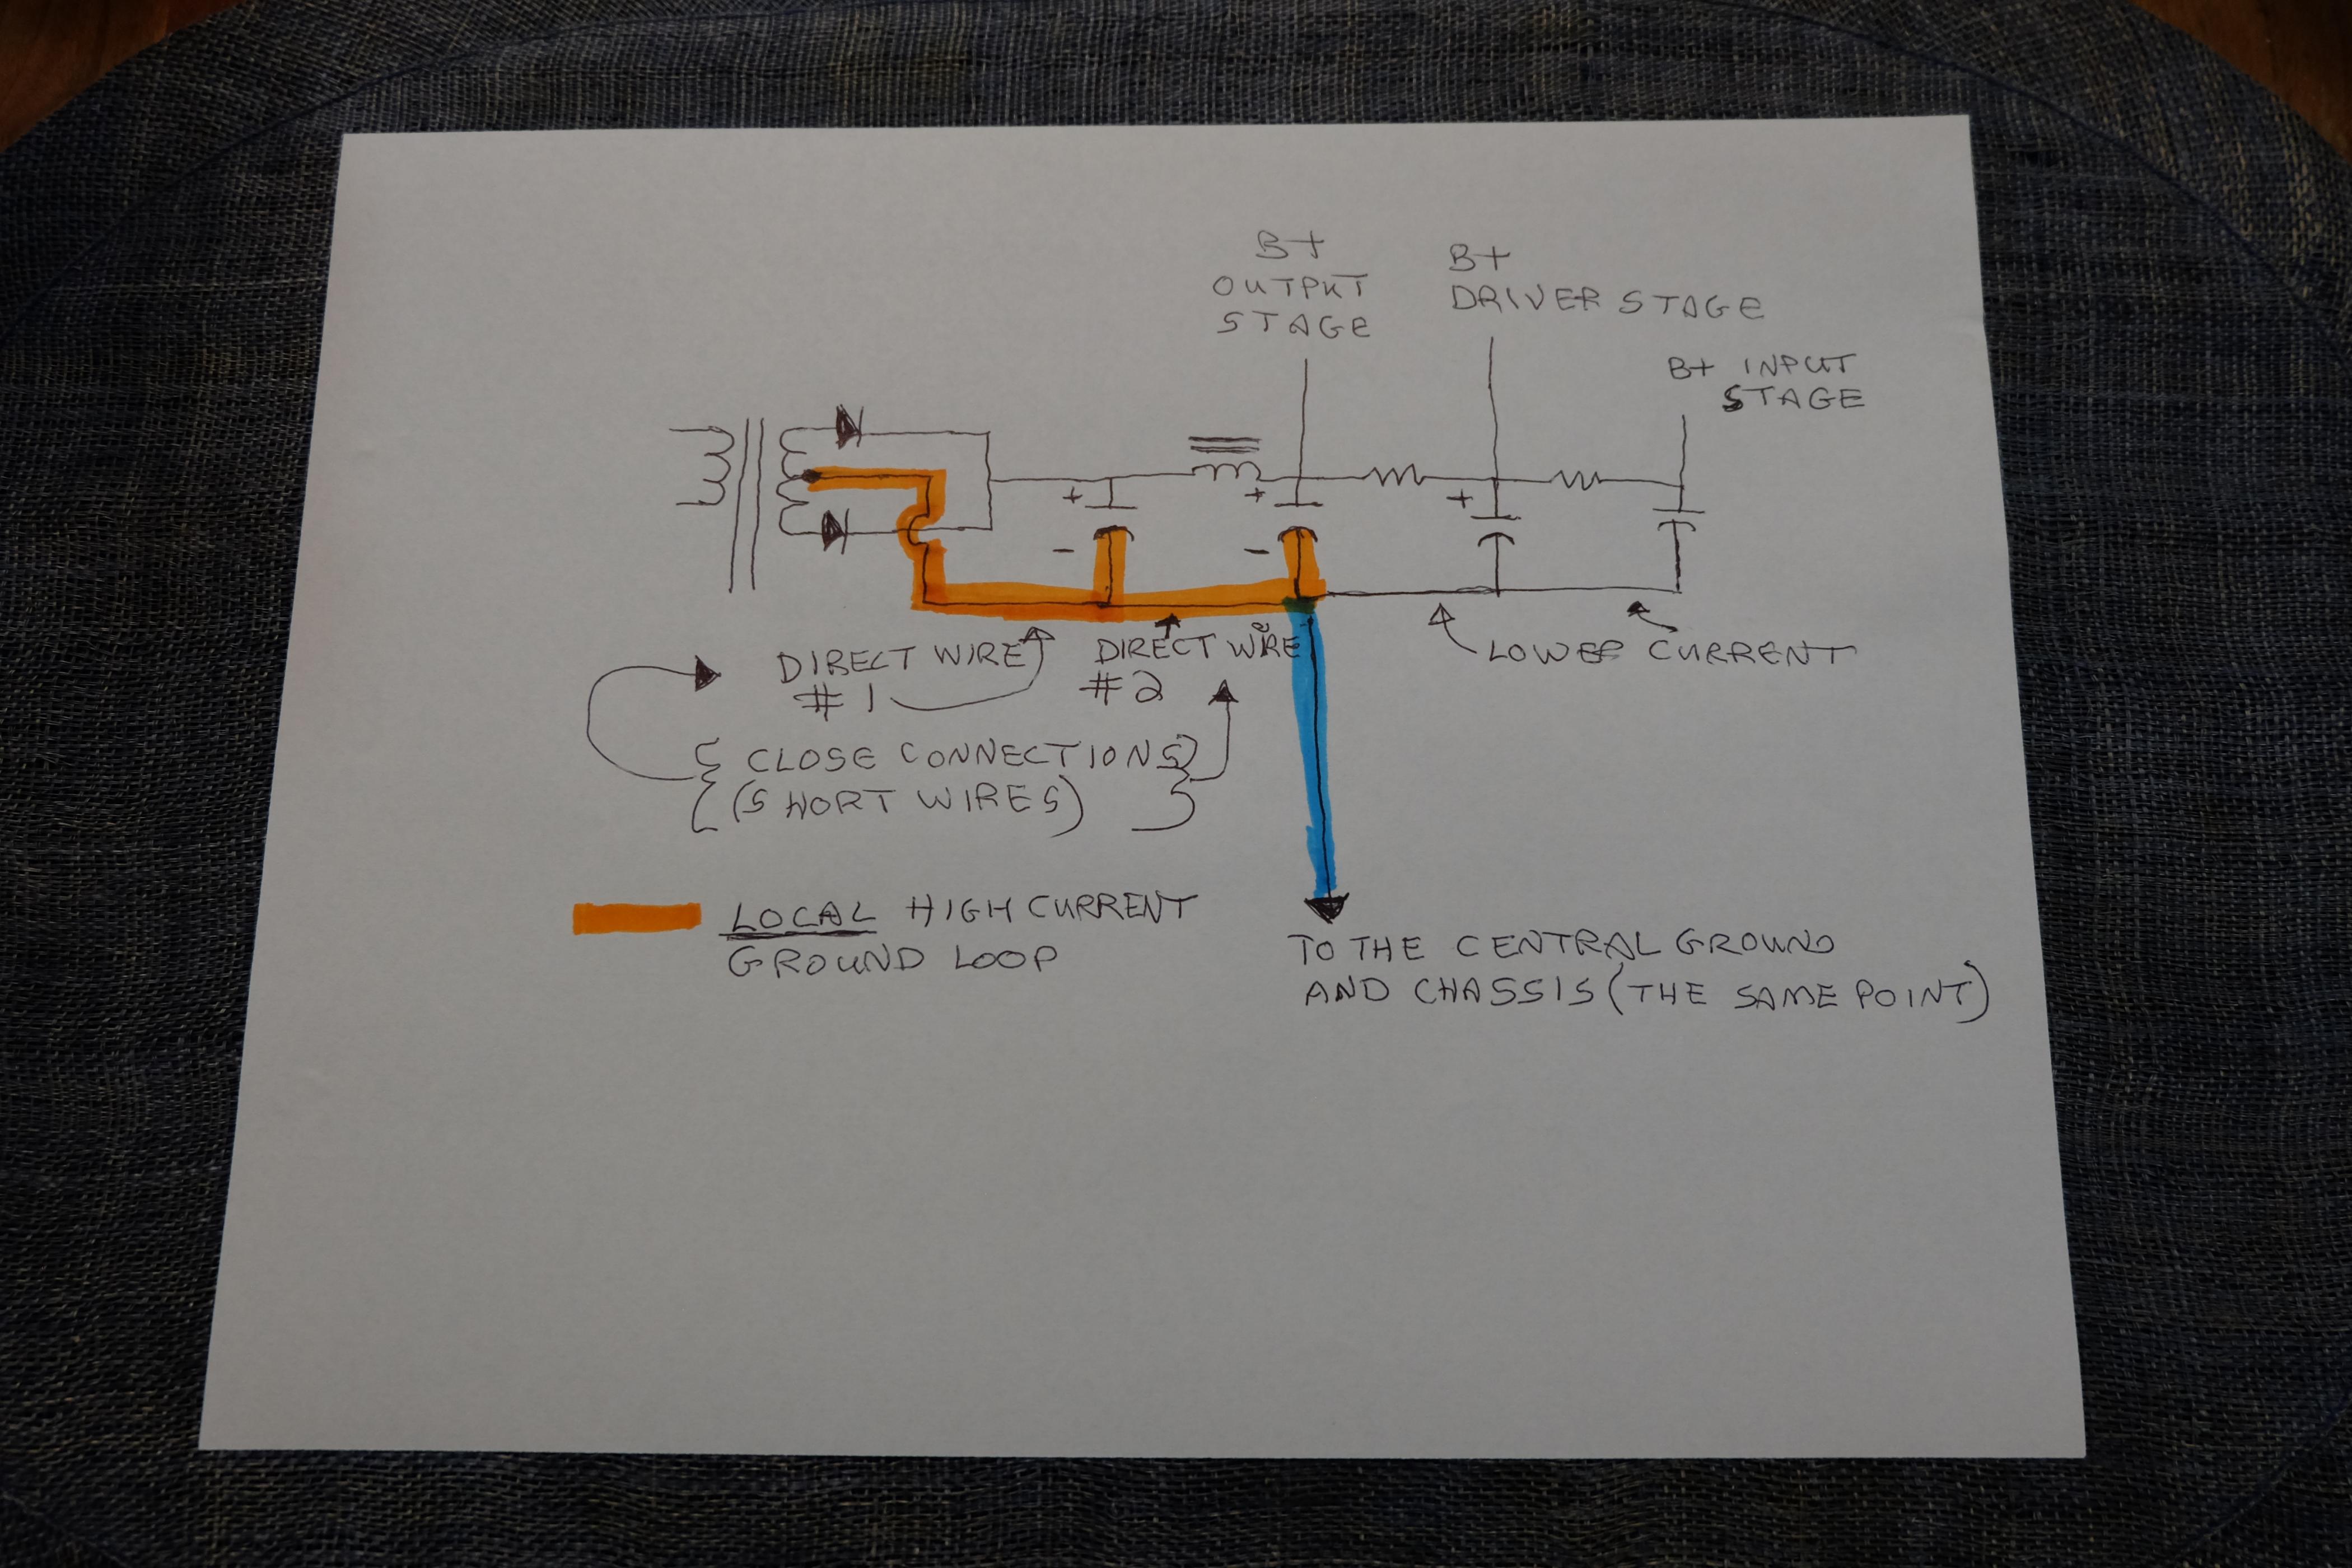 B+
OUTPUT
STAGE
B+
DRIVER STAGE
B+ INPUT
STAGE
+
+
+
-
-
DIRECT WIRE
# 1
DIRECT WIRE
#2
LOWER CURRENT
{ CLOSE CONNECTIONS }
{ (SHORT WIRES) }
LOCAL HIGH CURRENT
GROUND LOOP
TO THE CENTRAL GROUND
AND CHASSIS (THE SAME POINT)